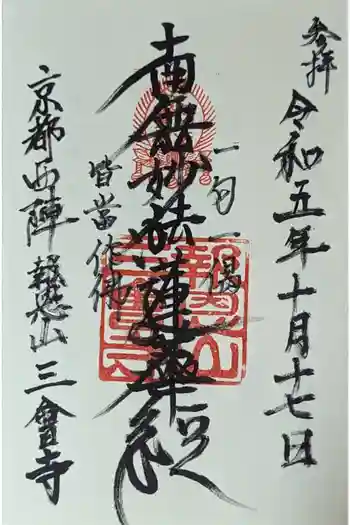 奉拝
令和五年十月十七日
一句一偈
南無妙法蓮華経
皆當作佛
京都西陣 報恩山 三會寺